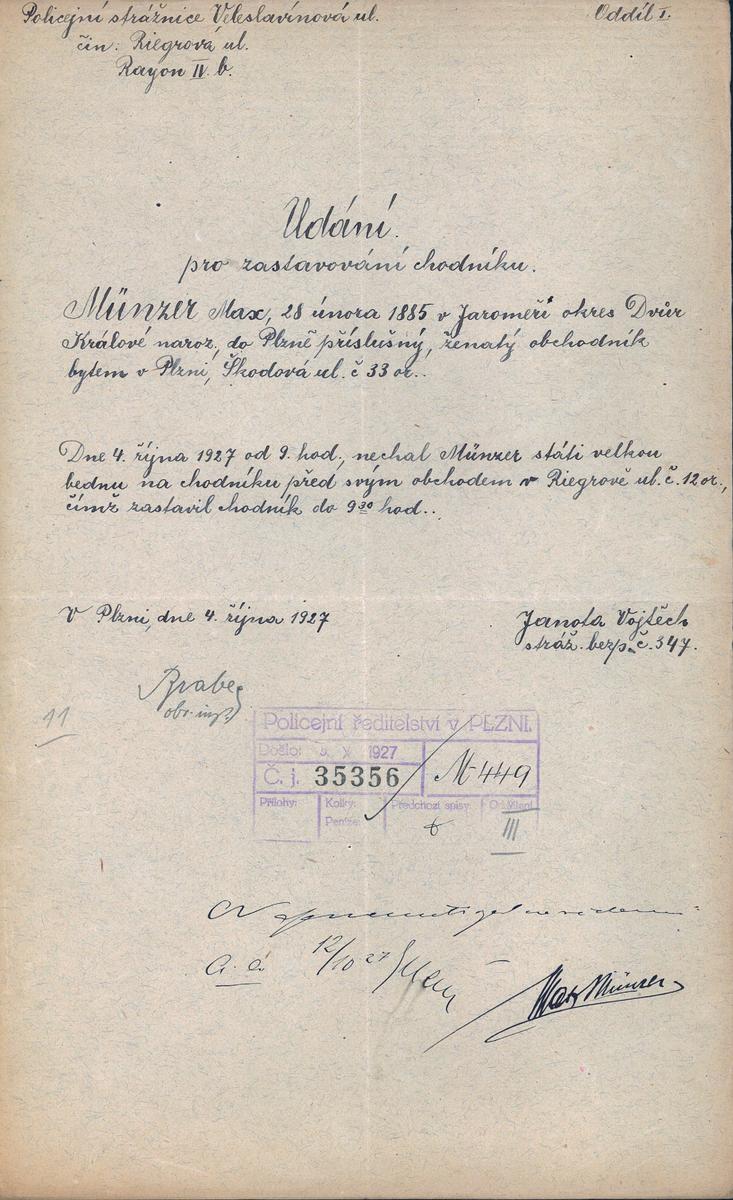 Policejní strážnice Veleslavínová ul.
Oddíl I.
čin: Riegrová ul.
Rayon IV. b.
Udání.
pro zastavování chodníku.
Münzer Max, 28 února 1885 v Jaroměři okres Dvůr
Králové naroz, do Plzně příslušný, ženatý obchodník
bytem v Plzni, Škodová ul. č 33 or..
Dne 4. října 1927 od 9. hod., nechal Münzer státi velkou
bednu na chodníku před svým obchodem v Riegrově ul. č. 12 or.,
čímž zastavil chodník do 9 30 hod..
V Plzni, dne 4. října 1927
Janota Vojtěch
stráž. bezp. č. 347.
11
Policejní ředitelství v PLZNI.
Došlo: 5. X 1927
Č. j. 35356 / M-449
Přílohy: Kolky: Předchozí spisy: Oddělení
Peníze:
III
a. a. 12/10 27
Max Münzer